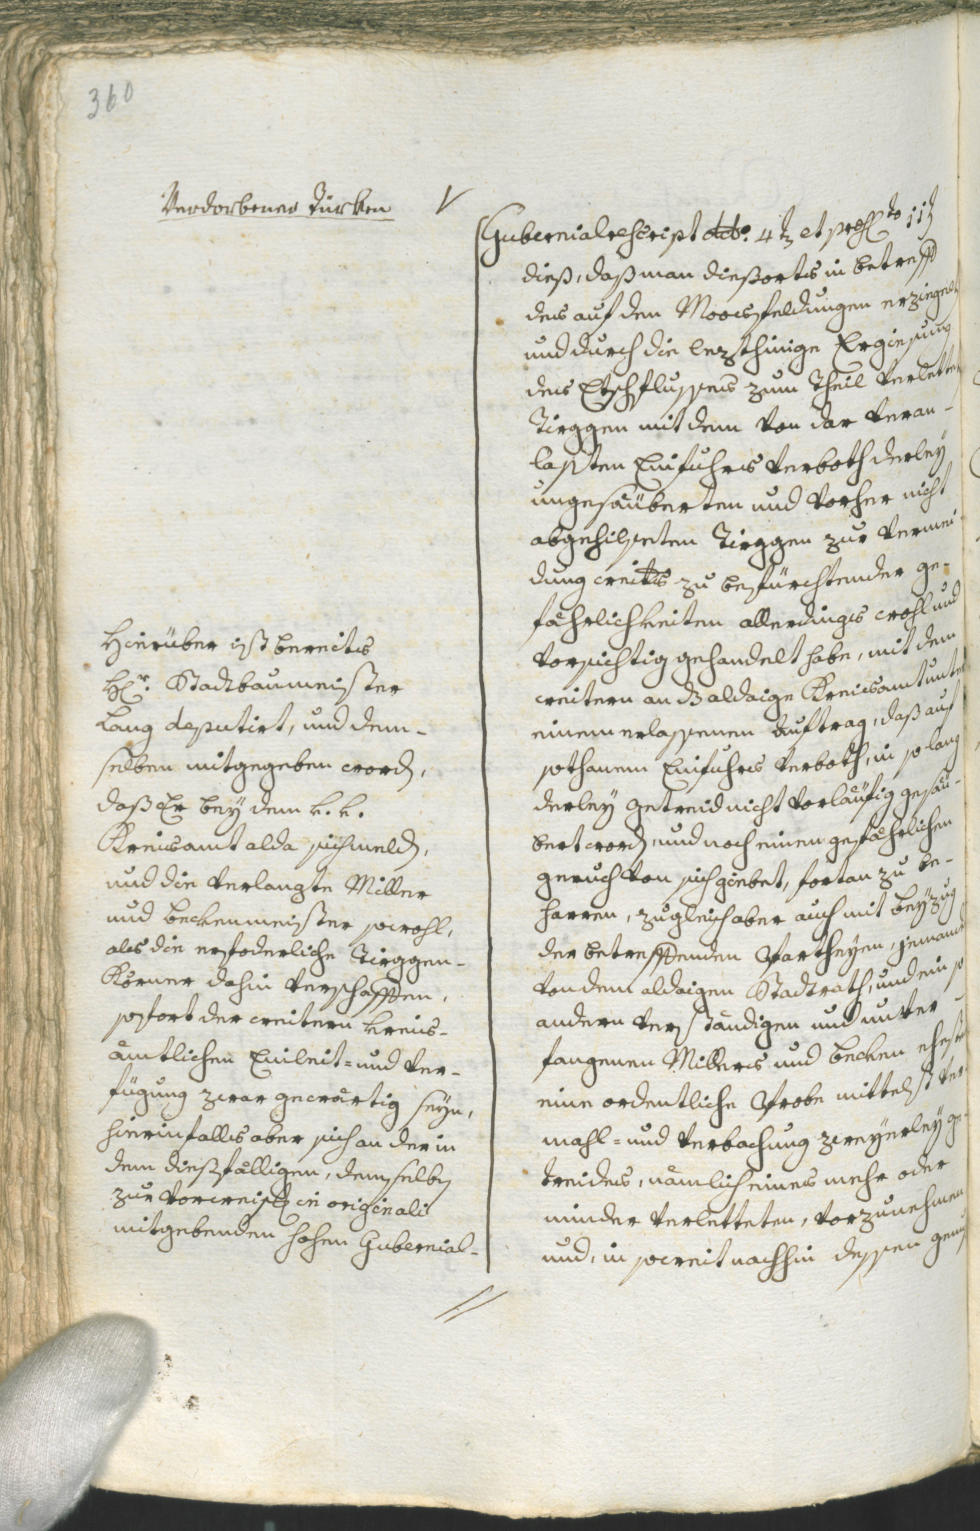 360
Verdorbener Türken
Hierüber ist bereits
H. Stadtbaumeister
Lang deputirt, und dem-
selben mitgegeben word,
daß Er bey dem k. k.
Kreisamt alda sich meld,
und die verlangte Miller
und beckenmeister sowohl,
als die erfoderliche Tirggen-
Körner dahin verschaffen,
sofort der weitern kreis-
ämtlichen Einleit= und Ver-
fügung zwar gewärtig seyn,
hierinfalls aber sich an der in
dem dießfälligen, demselb
zur vorweisg in originali
mitgebenden hohen Gubernial-
Gubernialrescript ddo. 4t et 11t
dieß, daß man dießorts in betreff
des auf den Moosfeldungen erziegelt
und durch die lezthinige Ergiesung
des Etschflusses zum Theil verlettet
Tirggen mit dem von dar veran-
laßten Einfuhrs verboth derley
ungesäuberten und vorher nicht
abgehilseten Tirggen zur vermei
dung weits zu befürchtender ge-
fährlichkeiten allerdings wohl und
vorsichtig gehandelt habe, mit dem
weitern an aldaige Kreisamt unter
einem erlassenen auftrag, daß auf
sothanem Einfuhrs verboth, in so lang
derley getreid nicht vorläufig gesäu-
bert word, und noch einen gefährlichen
geruch von sich giebet, fortan zu be-
harren, zugleich aber auch mit beyzug
der betreffenden Partheyen, jemand
von dem aldaigen Stadtrath, und ein
andern verständigen und unver
fangenen Millers und becken ehest
eine ordentliche Probe mittelst Ver
mahl= und Verbachung zweyerley ge-
treides, nämlich eines mehr oder
minder verletteten, vorzunehmen
und, in soweit nachhin dessen genuß